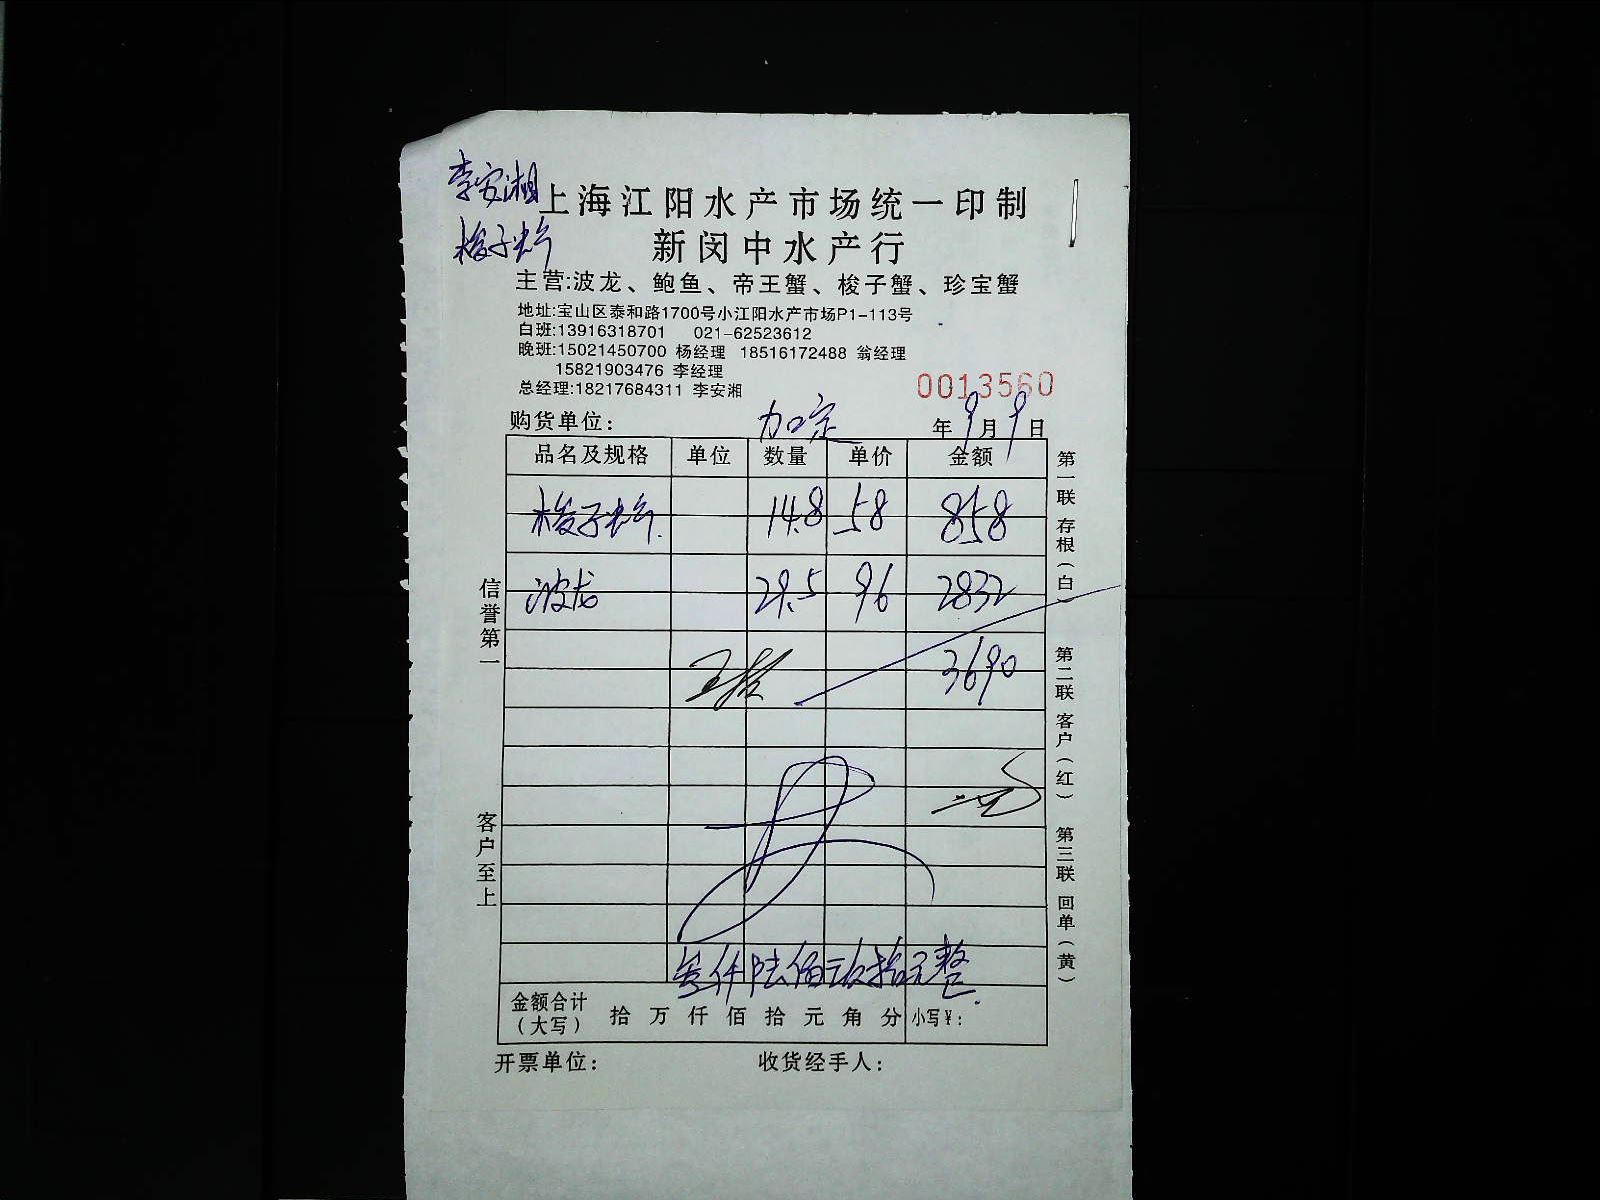 李安湘
梭子蟹
上海江阳水产市场统一印制
新闵中水产行
主营:波龙、鲍鱼、帝王蟹、梭子蟹、珍宝蟹
地址:宝山区泰和路1700号小江阳水产市场P1-113号
白班:13916318701 021-62523612
晚班:15021450700 杨经理 18516172488 翁经理
15821903476 李经理
总经理:18217684311 李安湘
0013560
购货单位: 加定 年9月9日
品名及规格 单位 数量 单价 金额
梭子蟹 14.8 58 858
波龙 29.5 96 2832
3690
叁仟陆佰玖拾元整
金额合计(大写) 拾 万 仟 佰 拾 元 角 分 小写¥:
开票单位: 收货经手人:
信誉第一
客户至上
第一联 存根(白)
第二联 客户(红)
第三联 回单(黄)